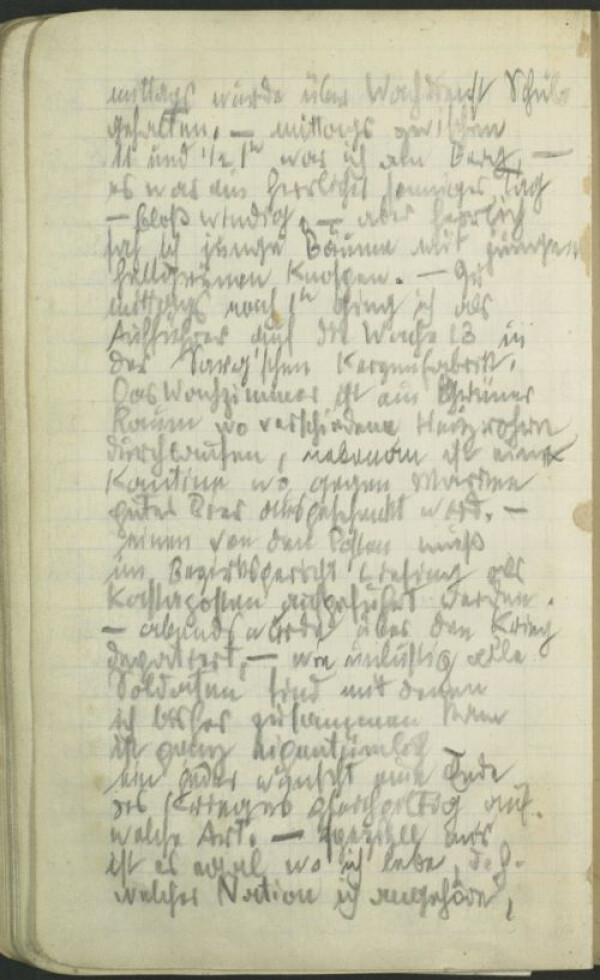 mittags wurde über Wachdienst Schule
gehalten. — mittags zwischen
12 und ½ 1ʰ war ich am Berg, —
es war ein herrlicher sonniger Tag
— bloß windig, — aber herrlich
sah ich junge Bäume mit jungen
hellgrünen Knospen. —
mittags nach 1ʰ ging ich als
Aufführer auf die Wache 13 in
der Sarg'schen Kerzenfabrik.
Das Wachzimmer ist ein
Raum wo verschiedene Heizrohre
durchlaufen, nebenan ist eine
Kantine wo gegen Marken
gutes Bier ausgeschenkt wird. —
einen von den Posten muß
im Bezirksgericht Liesing als
Kassaposten aufgeführt werden.
— abends wurde über den Krieg
debattiert, — wie unlustig alle
Soldaten sind mit denen
ich bisher zusammen kam
ist ganz eigentümlich
ein jeder wünscht ein Ende
des Krieges gleichgiltig auf
welche Art. — speziell mir
ist es egal wo ich lebe, d.h.
welcher Nation ich angehöre,